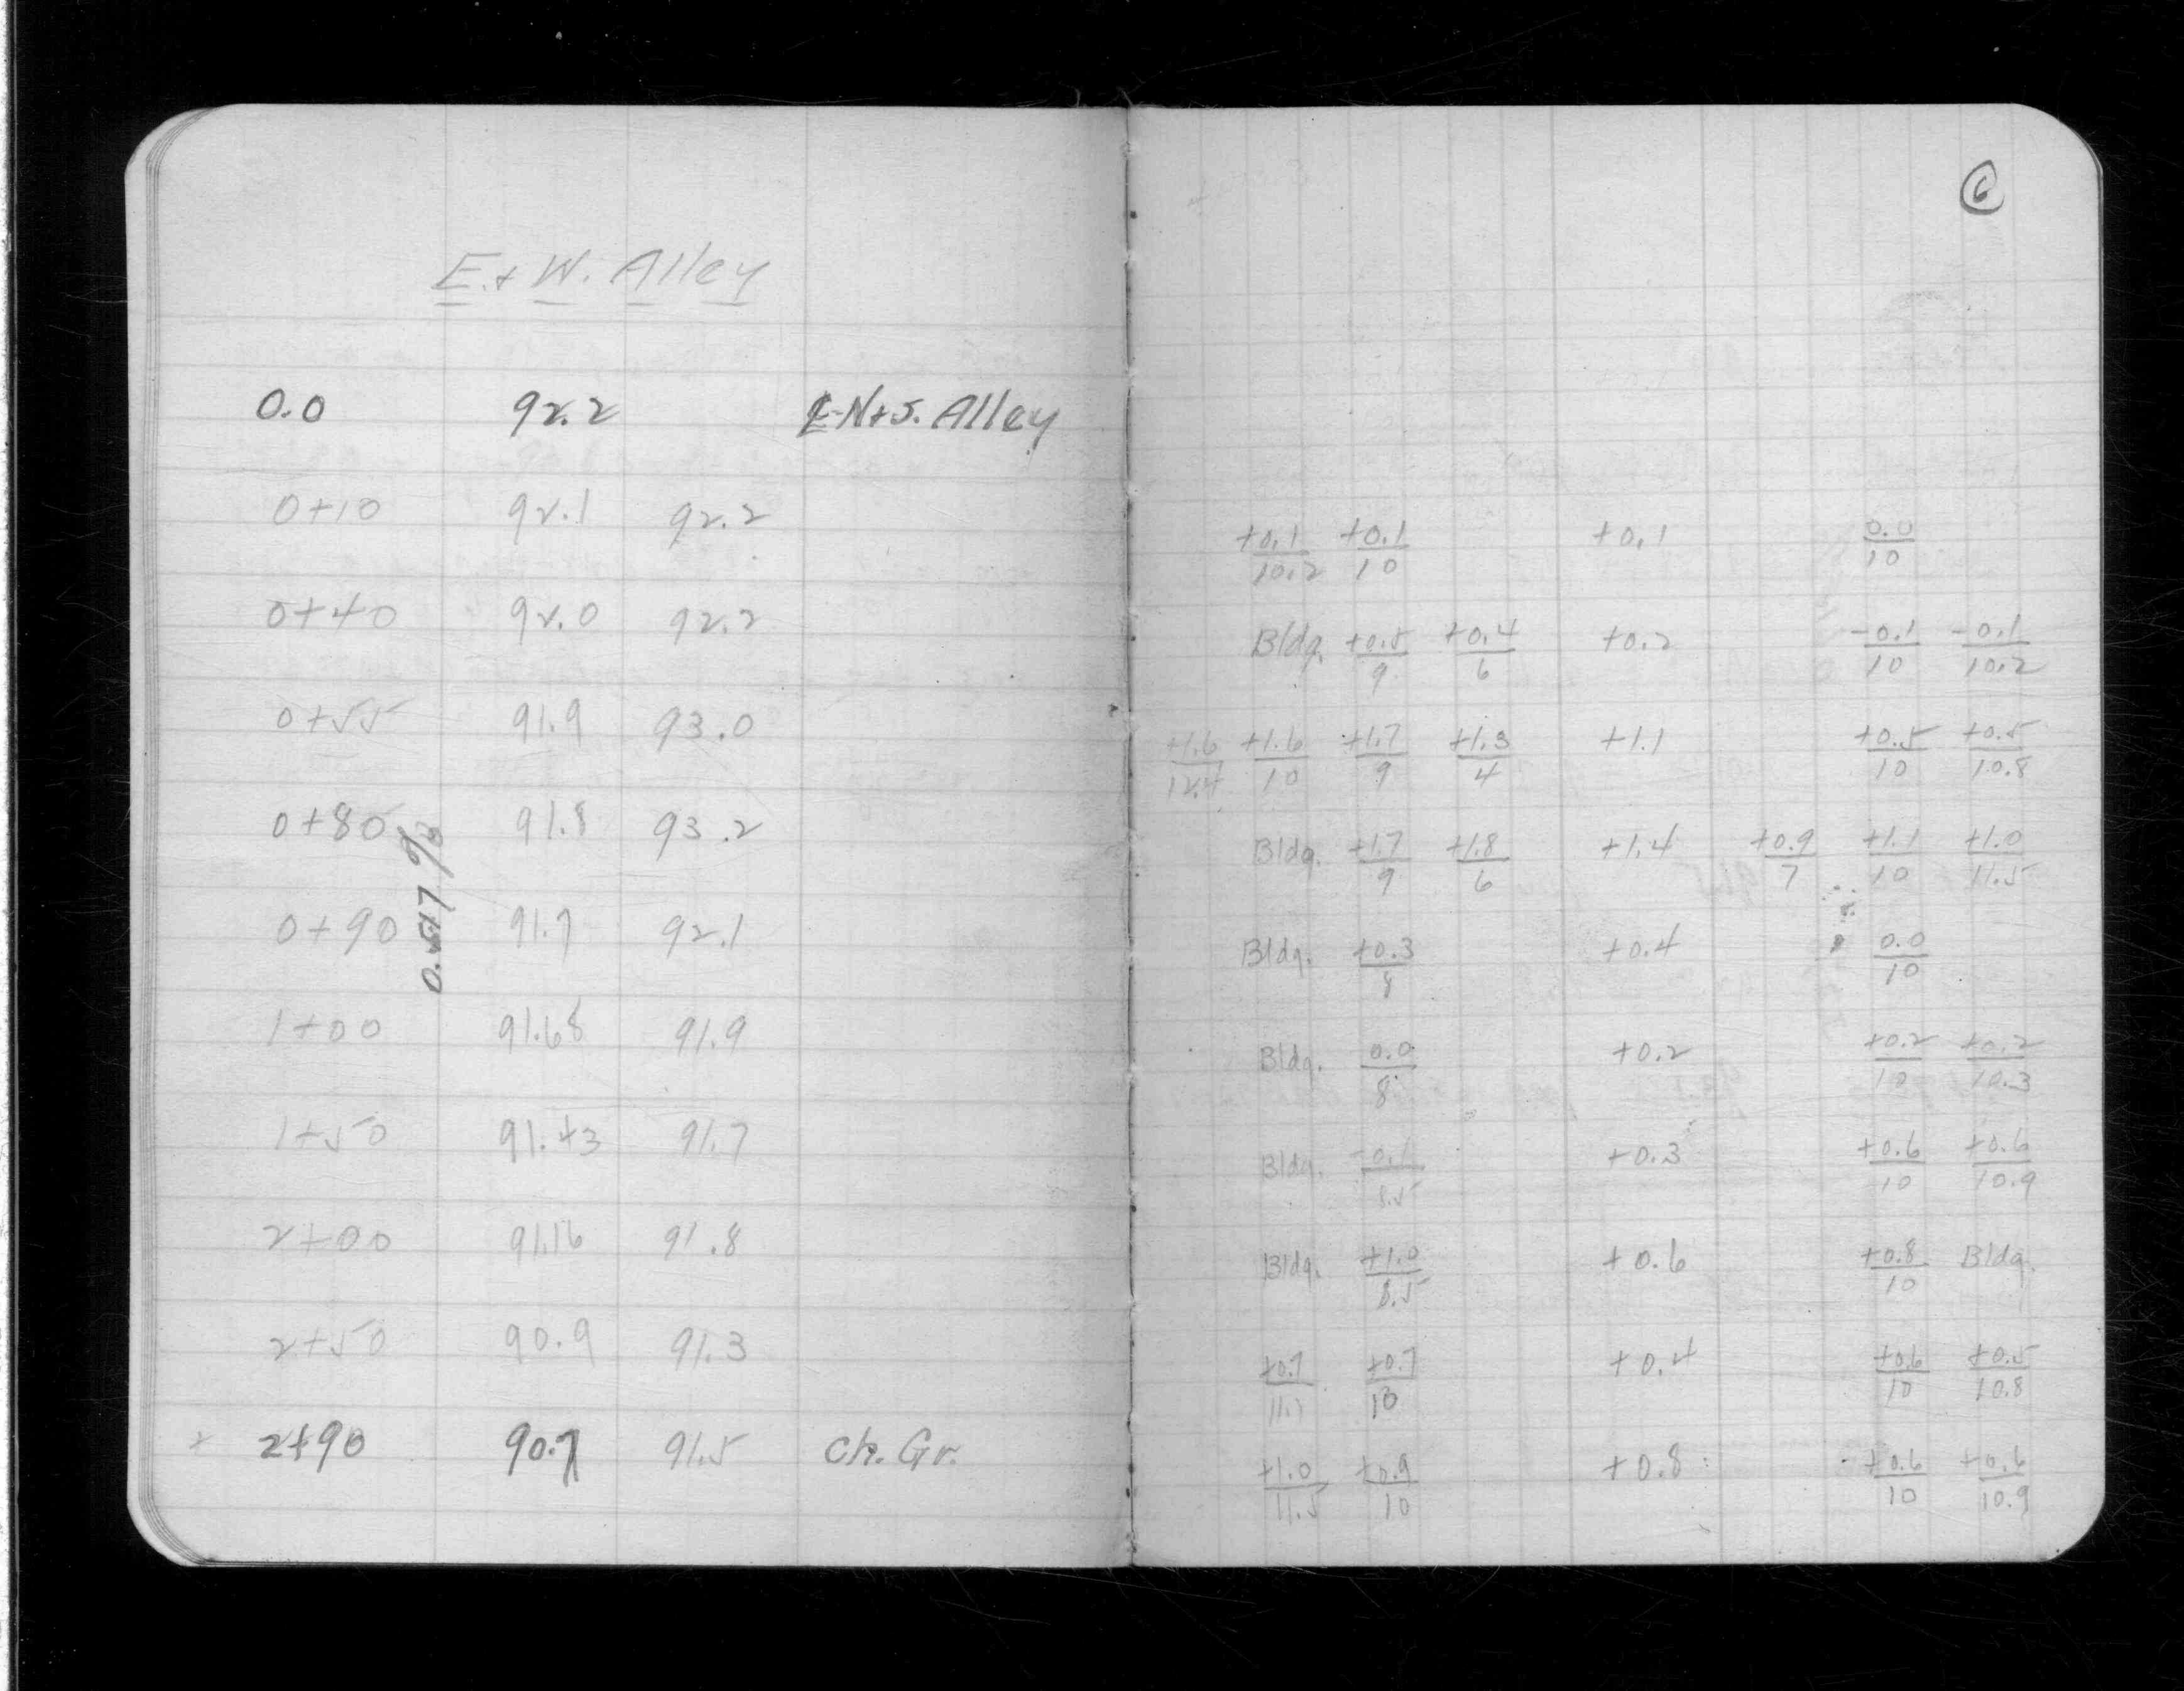 6
E. + W. Alley
0.0 92.2 ℄-N+S. Alley
0+10 92.1 92.2 +0.1/10.2 +0.1/10 +0.1 0.0/10
0+40 92.0 92.2 Bldg. +0.5/9 +0.4/6 +0.2 -0.1/10 -0.1/10.2
0+55 91.9 93.0 +1.6/12.4 +1.6/10 +1.7/9 +1.3/4 +1.1 +0.5/10 +0.5/10.8
0+80 91.8 93.2 Bldg. +1.7/9 +1.8/6 +1.4 +0.9/7 +1.1/10 +1.0/11.5
0+90 91.7 92.1 Bldg. +0.3/8 +0.4 0.0/10
1+00 91.68 91.9 Bldg. 0.0/8 +0.2 +0.2/10 +0.2/10.3
1+50 91.43 91.7 Bldg. -0.1/8.5 +0.3 +0.6/10 +0.6/10.9
2+00 91.16 91.8 Bldg. +1.0/8.5 +0.6 +0.8/10 Bldg.
2+50 90.9 91.3 +0.7 +0.7/10 +0.4 +0.6/10 +0.5/10.8
2+90 90.7 91.5 Ch. Gr. +1.0/11.5 +0.9/10 +0.8 +0.6/10 +0.6/10.9